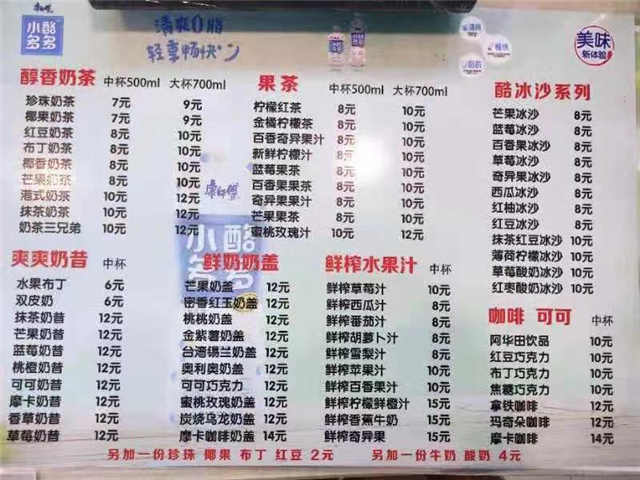 康师傅
小酪多多
清爽0脂
轻享畅快
美味
新体验
醇香奶茶 中杯500ml 大杯700ml
珍珠奶茶 7元 9元
椰果奶茶 7元 9元
红豆奶茶 8元 10元
布丁奶茶 8元 10元
椰香奶茶 8元 10元
芒果奶茶 8元 10元
港式奶茶 10元 12元
抹茶奶茶 10元 12元
奶茶三兄弟 10元 12元
果茶 中杯500ml 大杯700ml
柠檬红茶 8元 10元
金橘柠檬茶 8元 10元
百香奇异果汁 8元 10元
新鲜柠檬汁 8元 10元
蓝莓果茶 8元 10元
百香果果茶 8元 10元
奇异果果汁 8元 10元
芒果果茶 8元 10元
蜜桃玫瑰汁 10元 12元
酷冰沙系列
芒果冰沙 8元
蓝莓冰沙 8元
百香果冰沙 8元
草莓冰沙 8元
奇异果冰沙 8元
西瓜冰沙 8元
红柚冰沙 8元
红豆冰沙 8元
抹茶红豆冰沙 10元
薄荷柠檬冰沙 10元
草莓酸奶冰沙 10元
红枣酸奶冰沙 10元
爽爽奶昔 中杯
水果布丁 6元
双皮奶 6元
抹茶奶昔 12元
芒果奶昔 12元
蓝莓奶昔 12元
桃橙奶昔 12元
可可奶昔 12元
摩卡奶昔 12元
香草奶昔 12元
草莓奶昔 12元
康师傅
小酪多多
鲜奶奶盖
芒果奶盖 12元
密香红玉奶盖 12元
桃桃奶盖 12元
金紫薯奶盖 12元
台湾锡兰奶盖 12元
奥利奥奶盖 12元
可可巧克力 12元
蜜桃玫瑰奶盖 12元
炭烧乌龙奶盖 12元
摩卡咖啡奶盖 14元
鲜榨水果汁 中杯
鲜榨草莓汁 10元
鲜榨西瓜汁 8元
鲜榨番茄汁 8元
鲜榨胡萝卜汁 8元
鲜榨雪梨汁 8元
鲜榨苹果汁 10元
鲜榨百香果汁 10元
鲜榨柠檬鲜橙汁 15元
鲜榨香蕉牛奶 15元
鲜榨奇异果 15元
咖啡 可可 中杯
阿华田饮品 10元
红豆巧克力 10元
布丁巧克力 10元
焦糖巧克力 10元
拿铁咖啡 12元
玛奇朵咖啡 12元
摩卡咖啡 14元
另加一份珍珠 椰果 布丁 红豆 2元
另加一份牛奶 酸奶 4元